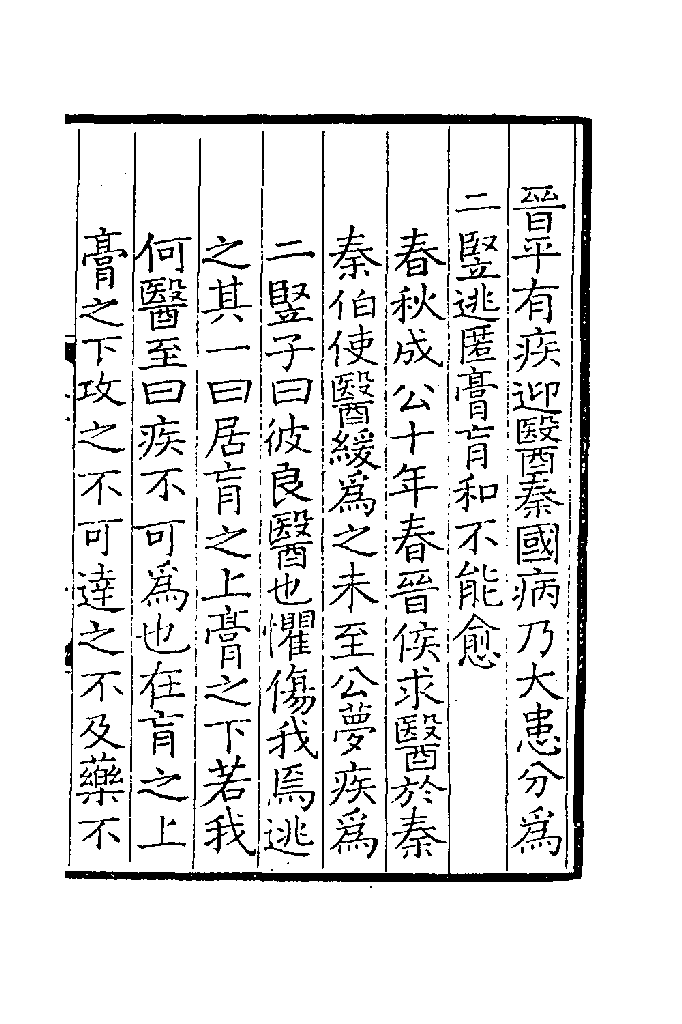 晉平有疾迎醫秦國病乃大患分爲
二豎逃匿膏肓和不能愈
春秋成公十年春晉侯求醫於秦
秦伯使醫緩爲之未至公夢疾爲
二豎子曰彼良醫也懼傷我焉逃
之其一曰居肓之上膏之下若我
何醫至曰疾不可爲也在肓之上
膏之下攻之不可達之不及藥不